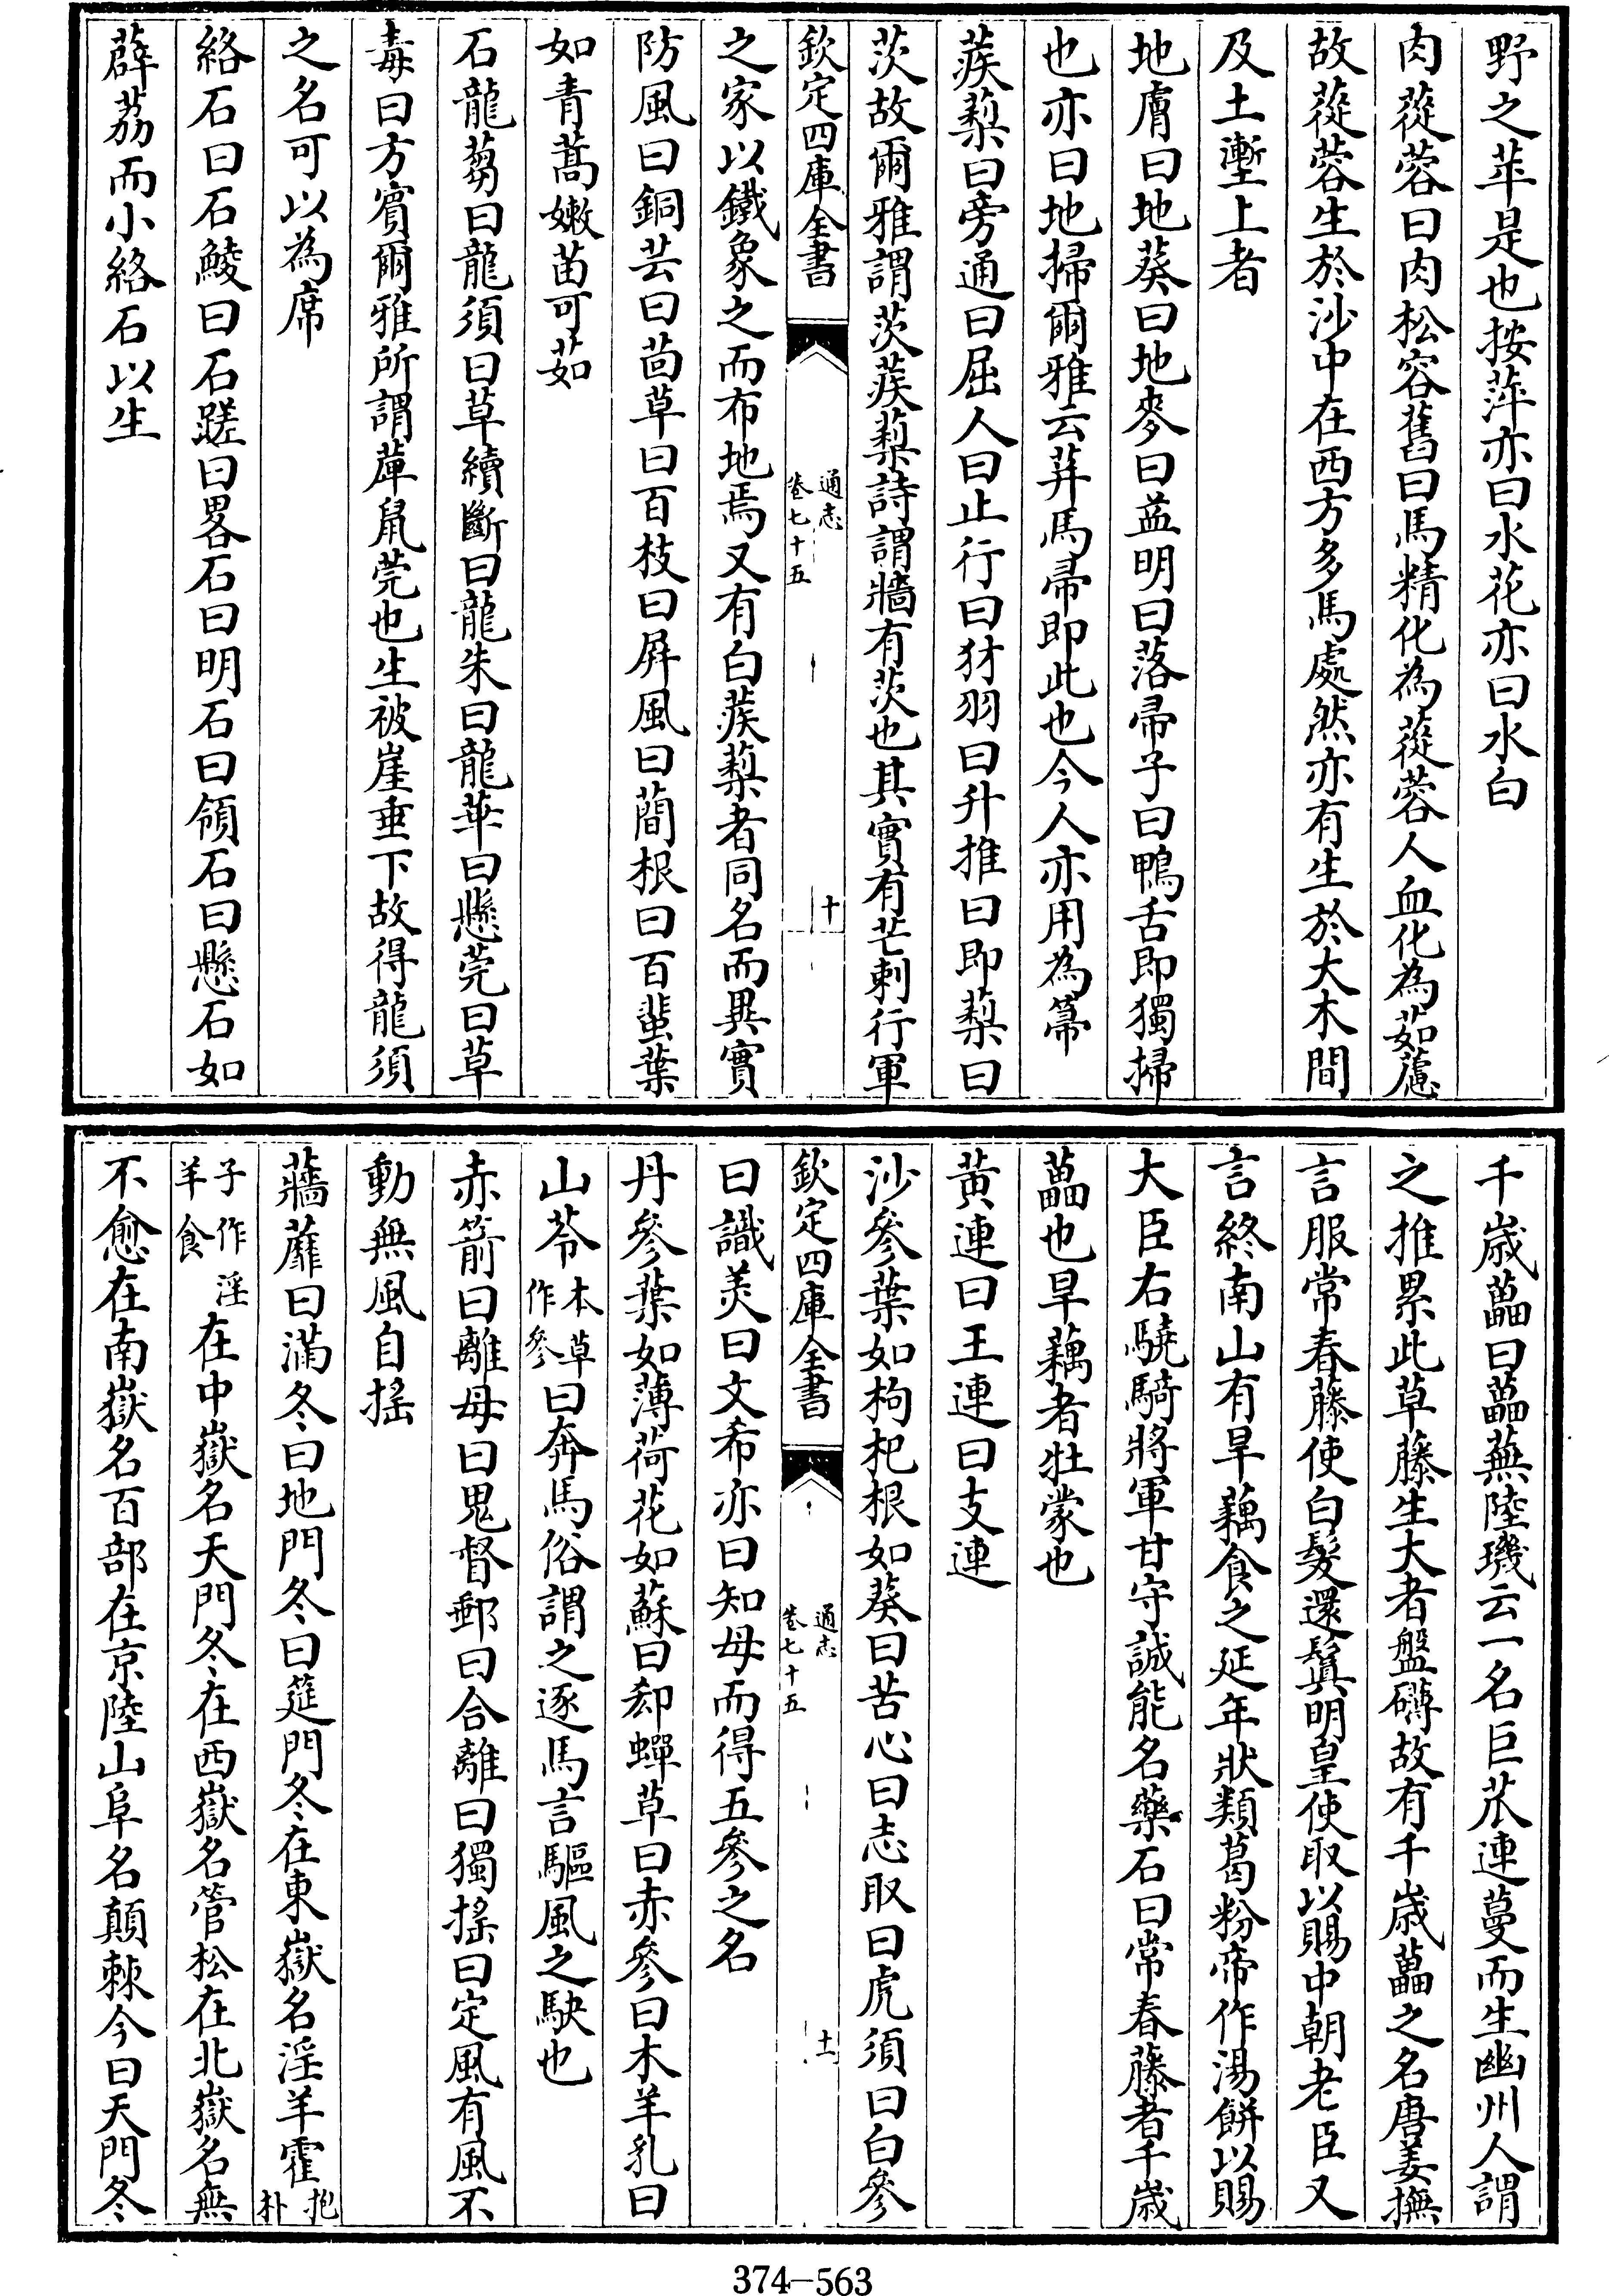 野之苹是也按萍亦曰水花亦曰水白
肉蓯蓉曰肉松容舊曰馬精化為蓯蓉人血化為茹藘
故蓯蓉生於沙中在西方多馬處然亦有生於大木間
及土壍上者
地膚曰地葵曰地麥曰益明曰落帚子曰鴨舌即獨掃
也亦曰地掃爾雅云荓馬帚即此也今人亦用為箒
蒺䔧曰旁通曰屈人曰止行曰犲羽曰升推曰即䔧曰
茨故爾雅謂茨蒺䔧詩謂牆有茨也其實有芒刺行軍
欽定四庫全書
通志
卷七十五
十
之家以鐵象之而布地焉又有白蒺䔧者同名而異實
防風曰銅芸曰茴草曰百枝曰屏風曰蕳根曰百蜚葉
如青蒿嫩苗可茹
石龍芻曰龍須曰草續斷曰龍朱曰龍華曰懸莞曰草
毒曰方賓爾雅所謂䔂鼠莞也生被崖垂下故得龍須
之名可以為席
絡石曰石鯪曰石蹉曰畧石曰明石曰領石曰懸石如
薜荔而小絡石以生
千歲虆曰虆蕪陸璣云一名巨苽連蔓而生幽州人謂
之推累此草藤生大者盤礡故有千歲虆之名唐姜撫
言服常春藤使白髮還鬒明皇使取以賜中朝老臣又
言終南山有旱藕食之延年狀類葛粉帝作湯餅以賜
大臣右驍騎將軍甘守誠能名藥石曰常春藤者千歲
虆也旱藕者牡蒙也
黃連曰王連曰支連
沙參葉如枸杞根如葵曰苦心曰志取曰虎須曰白參
欽定四庫全書
通志
卷七十五
十一
曰識美曰文希亦曰知母而得五參之名
丹參葉如薄荷花如蘇曰郄蟬草曰赤參曰木羊乳曰
山苓本草作參曰奔馬俗謂之逐馬言驅風之駃也
赤箭曰離母曰鬼督郵曰合離曰獨搖曰定風有風不
動無風自搖
蘠蘼曰滿冬曰地門冬曰筵門冬在東嶽名淫羊霍抱朴
子作淫羊食在中嶽名天門冬在西嶽名管松在北嶽名無
不愈在南嶽名百部在京陸山阜名顛棘今曰天門冬
374-563